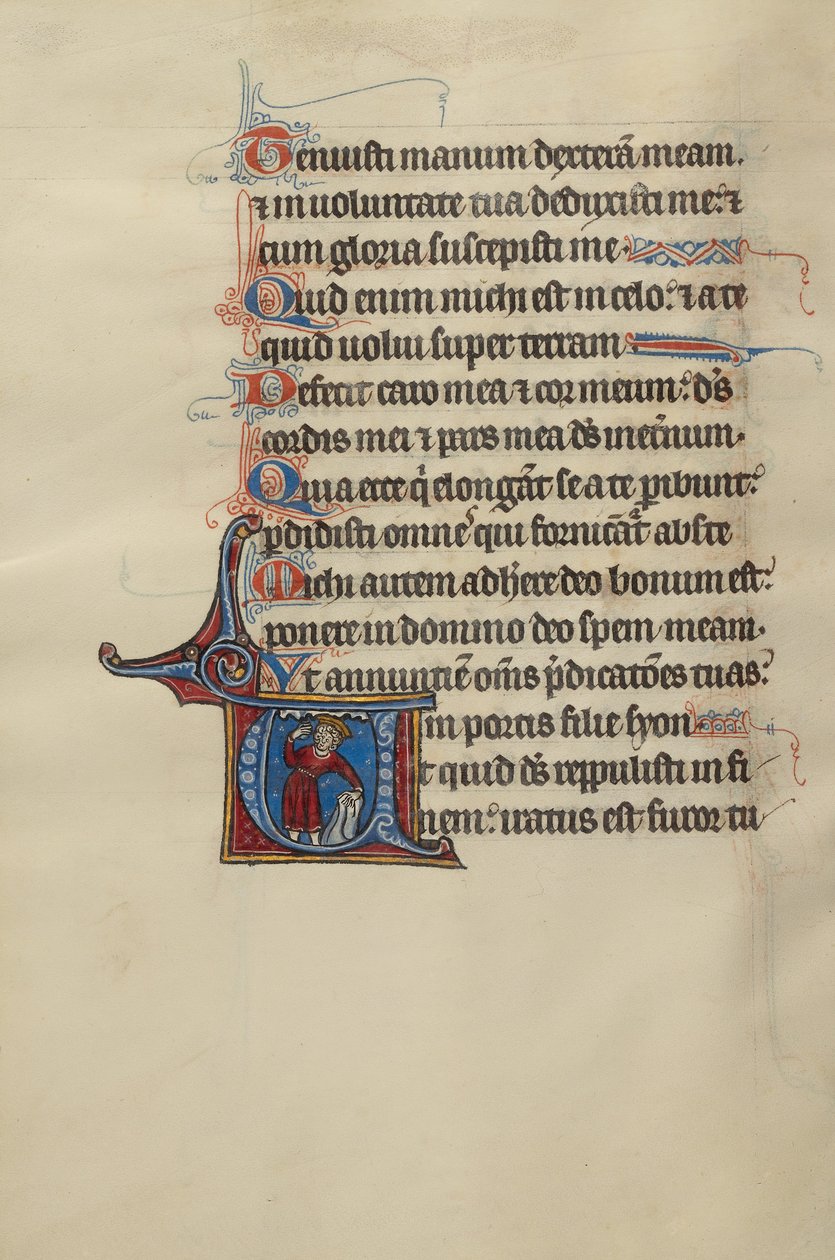 Tenuisti manum dexterā meam.
⁊ in uoluntate tua deduxisti me: ⁊
cum gloria suscepisti me.
Quid enim michi est in celo: ⁊ a te
quid uolui super terram
Defecit caro mea ⁊ cor meum: d̄s
cordis mei ⁊ pars mea d̄s in et̄num.
Quia ecce q̇ elongāt se a te ꝑibunt:
ꝑdidisti omnes qui fornicāt̄ abs te
Michi autem adh̄ere deo bonum est:
ponere in domino deo spem meam.
Vt annuntiē om̄s p̄dicatōes tuas:
in portis filie syon
Vt quid d̄s reppulisti in fi
nem: iratus est furor tu